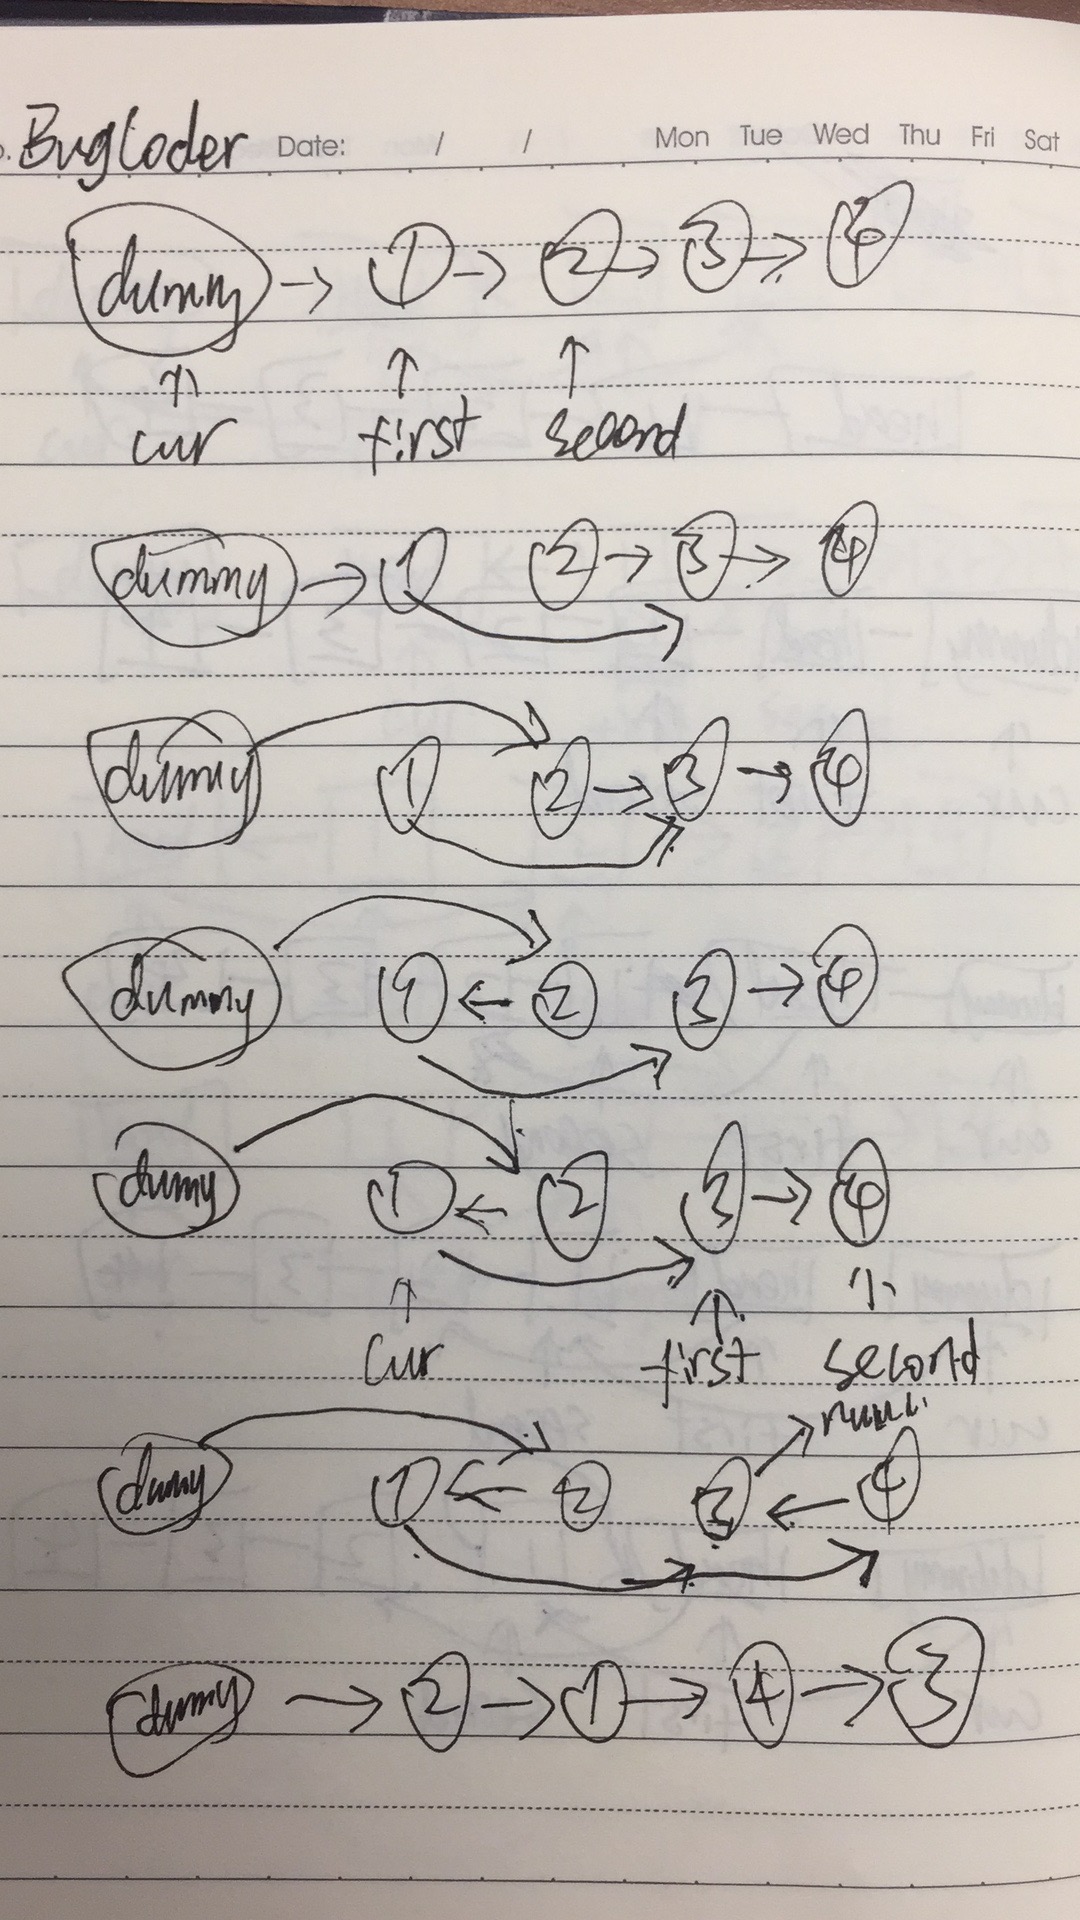 BugLoder Date: / / Mon Tue Wed Thu Fri Sat
dummy → 1 → 2 → 3 → 4
↑ ↑ ↑
cur first second
dummy → 1 2 → 3 → 4
dummy 1 2 → 3 → 4
dummy 1 ← 2 3 → 4
dumy 1 ← 2 3 → 4
↑ ↑ ↑
cur first second
null
dumy 1 ← 2 3 ← 4
dumy → 2 → 1 → 4 → 3